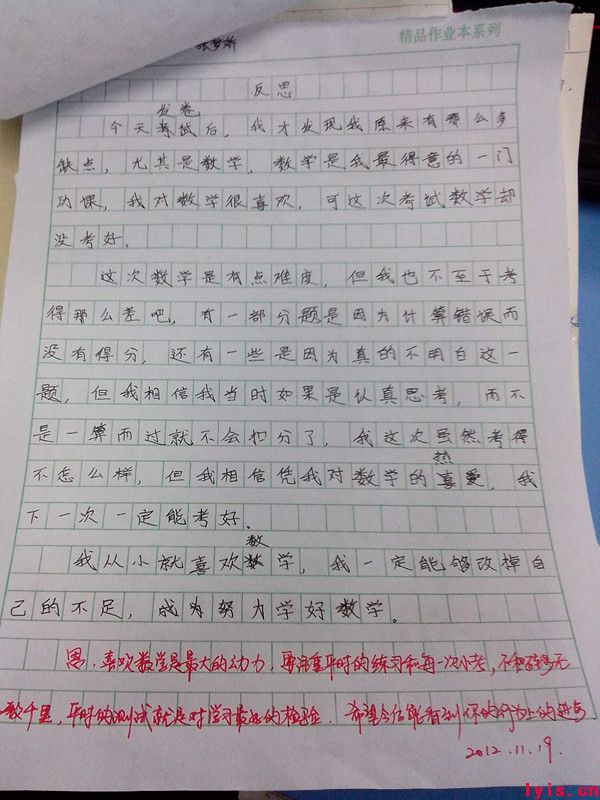 精品作业本系列
张梦娇
反思
今天发卷后，我才发现我原来有那么多
缺点，尤其是数学，数学是我最得意的一门
功课，我对数学很喜欢，可这次考试数学却
没考好。
这次数学是有点难度，但我也不至于考
得那么差吧，有一部分题是因为计算错误而
没有得分，还有一些是因为真的不明白这一
题，但我相信我当时如果是认真思考，而不
是一算而过就不会扣分了，我这次虽然考得
不怎么样，但我相信凭我对数学的热爱，我
下一次一定能考好。
我从小就喜欢数学，我一定能够改掉自
己的不足，成为努力学好数学。
恩，喜欢数学是最大的动力，要注重平时的练习和每一次小考，不积跬步无
数千里，平时的测试就是对学习最好的检验．希望今后能看到你的行动上的进步
2012.11.19.
lyis.cn